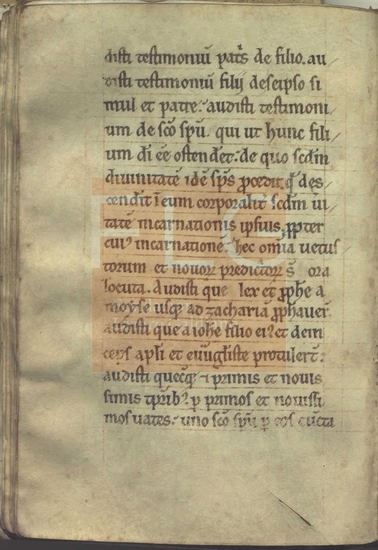 disti testimoniū pat̄s de filio. au
disti testimoniū filij de seipso si
mul et patre. audisti testimoni
um de sc̄o sp̄u. qui ut hunc fili
um di ēē ostenderet. de quo scdm
diuinitatē idē sp̄s p̄cedit. q̄ des
cendit ī eum corporalit scdm ui
tatē incarnationis ipsius, ꝓpter
cui' incarnationē. hec om̄ia uetus
torum et nouoꝝ predictoꝝ s̄ ora
locuta. Audisti que lex et ꝓph̄e a
moyse usq; ad zachariā ꝓphauer̄
audisti que a ioh̄e filio ei' et dein
ceps apl̄i et euuḡliste protulerūt.
audisti quecq; ī primis et nouis
simis tp̄rib; p̄ primos et nouissi
mos uates. uno sc̄o sp̄u p̄ eos cūcta